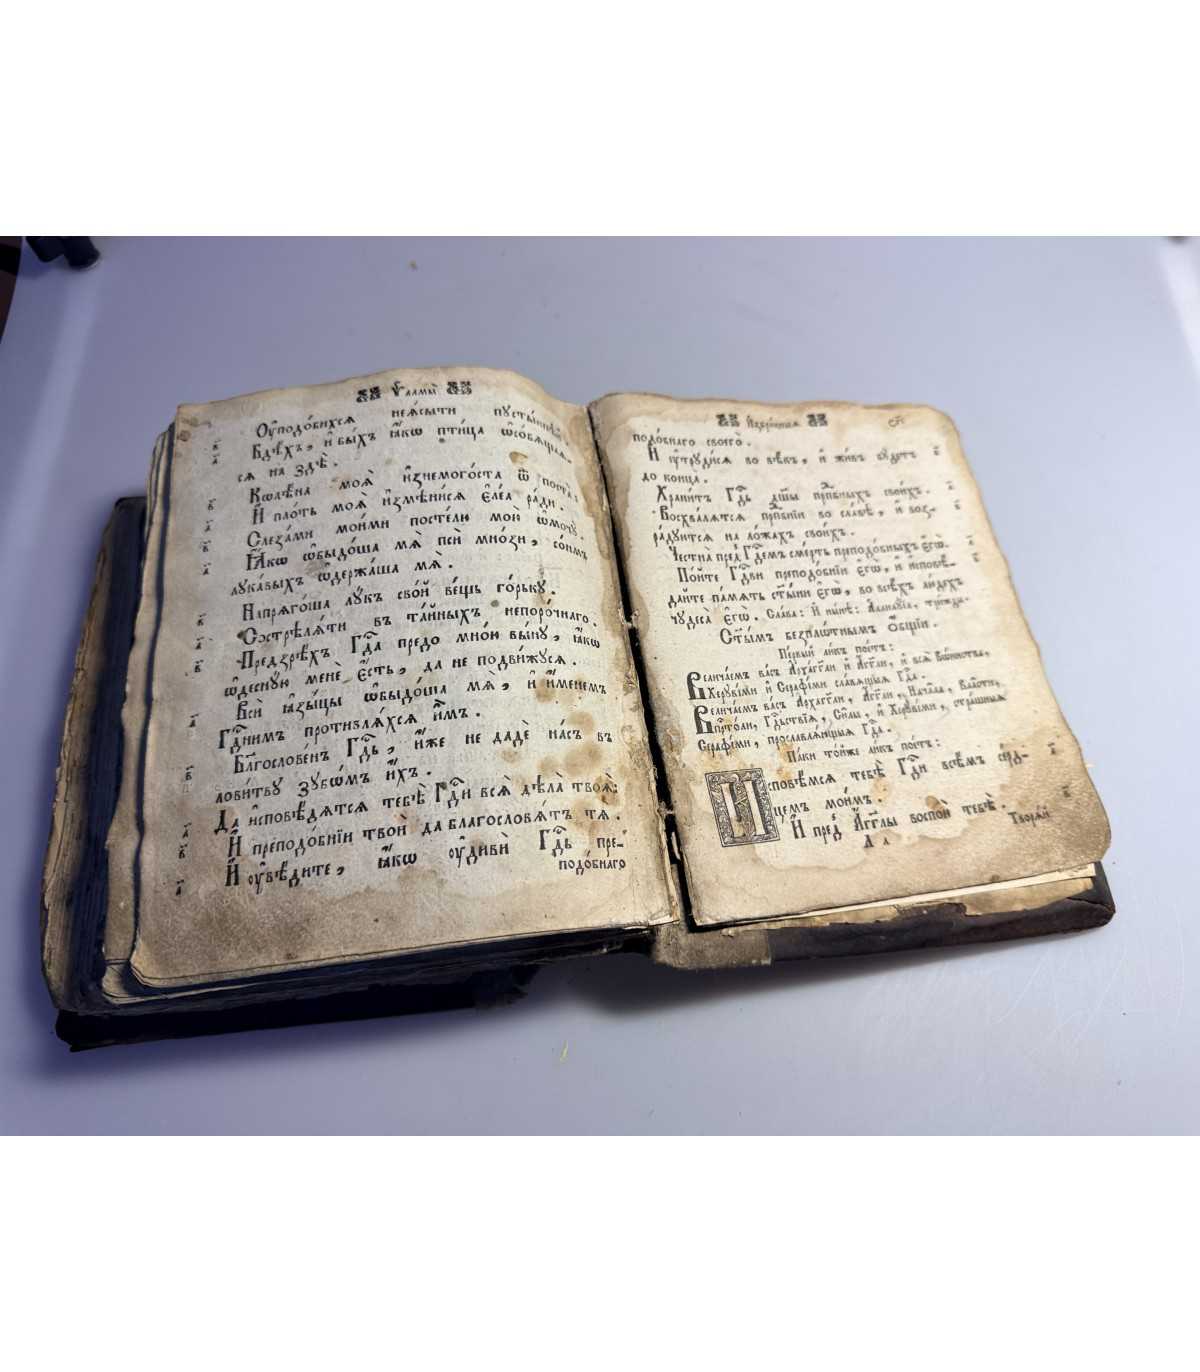 Ѱалмы̀
Оу҆подо́бихсѧ неѧ́сыти пусты́ннѣй,
Бдѣ́хъ, и҆ бы́хъ ꙗ҆́кѡ пти́ца ѡ҆со́бѧщаѧ-
сѧ на здѣ̀.
Кѡлѣ́на моѧ̀ и҆знемого́ста ѿ поста̀:
И҆ пло́ть моѧ̀ и҆змѣни́сѧ є҆ле́а ра́ди.
Слеза́ми мои́ми посте́лю мою̀ ѡ҆мочу̀.
Ꙗ҆́кѡ ѡ҆быдо́ша мѧ̀ псѝ мно́зи, со́нмъ
лука́выхъ ѡ҆держа́ша мѧ̀.
Напрѧго́ша лу́къ сво́й ве́щь го́рьку.
Сострѣлѧ́ти въ та́йныхъ непоро́чнаго.
Предзрѣ́хъ Гдⷭ҇а предо мно́ю вы́ну, ꙗ҆́кѡ
ѡ҆десну́ю менѐ є҆́сть, да не подви́жусѧ.
Всѝ ꙗ҆зы́цы ѡ҆быдо́ша мѧ̀, и҆ и҆́менемъ
Гдⷭ҇нимъ противлѧ́хсѧ и҆̀мъ.
Блг҃ослове́нъ Гдⷭ҇ь, и҆́же не дадѐ на́съ въ
лови́тву зубѡ́мъ и҆́хъ.
Да и҆сповѣ́дѧтсѧ тебѣ̀ Гдⷭ҇и всѧ̀ дѣ́ла твоѧ̀:
И҆ преподо́бнїи твоѝ да благословѧ́тъ тѧ̀.
И҆ оу҆вѣ́дите, ꙗ҆́кѡ оу҆дивѝ Гдⷭ҇ь пре-
подо́бнаго
И҆збра́нныѧ
подо́бнаго своего̀.
И҆ оу҆труди́сѧ во вѣ́къ, и҆ жи́въ бу́детъ
до конца̀.
Храни́тъ Гдⷭ҇ь дш҃ы прпⷣбныхъ свои́хъ.
Восхва́лѧтсѧ прпⷣбнїи во сла́вѣ, и҆ воз-
ра́дуютсѧ на ло́жахъ свои́хъ.
Честна̀ пред̾ Гдⷭ҇емъ сме́рть преподо́бныхъ є҆гѡ̀.
По́йте Гдⷭ҇ви преподо́бнїи є҆гѡ̀, и҆ и҆сповѣ́-
дайте па́мѧть ст҃ы́ни є҆гѡ̀, во всѣ́хъ лю́дехъ
чудеса̀ є҆гѡ̀. Сла́ва: И҆ ны́нѣ: Аллилу́їа, три́жды.
Ст҃ы̑мъ безпло́тнымъ о҆́бщїи.
Пе́рвый ли́къ пое́тъ:
Велича́емъ ва́съ А҆рха́гг҃ли и҆ А҆́гг҃ли, и҆ всѧ̀ во́инства,
Херуві́ми и҆ Серафі́ми сла́вѧщыѧ Гдⷭ҇а.
Велича́емъ ва́съ А҆рха́гг҃ли, А҆́гг҃ли, Нача́ла, Вла́сти,
Прⷭ҇то́ли, Гдⷭ҇ьствїѧ, Си́лы, и҆ Херуві́ми, стра́шныѧ
Серафі́ми, прославлѧ́ющыѧ Гдⷭ҇а.
Па́ки то́йже ли́къ пое́тъ:
И҆сповѣ́мсѧ тебѣ̀ Гдⷭ҇и всѣ́мъ се́рд-
цемъ мои́мъ.
И҆ пред̾ А҆́гг҃лы воспою̀ тебѣ̀.
Творѧ́й